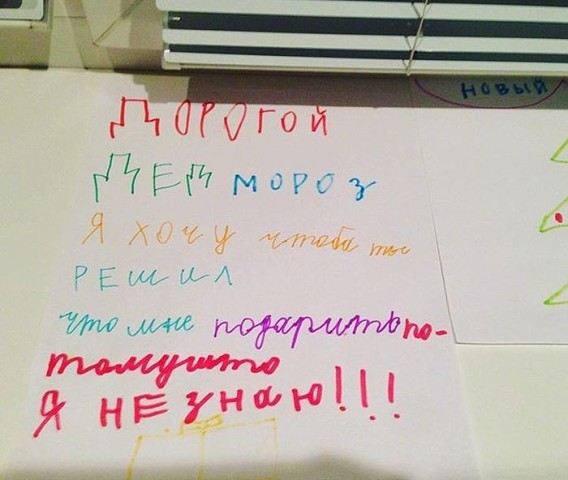 ДОРОГОЙ
ДЕД МОРОЗ
Я ХОЧУ чтоба ты
РЕШИЛ
что мне подарить по-
томушто
Я НЕ ЗНАЮ!!!
НОВЫЙ